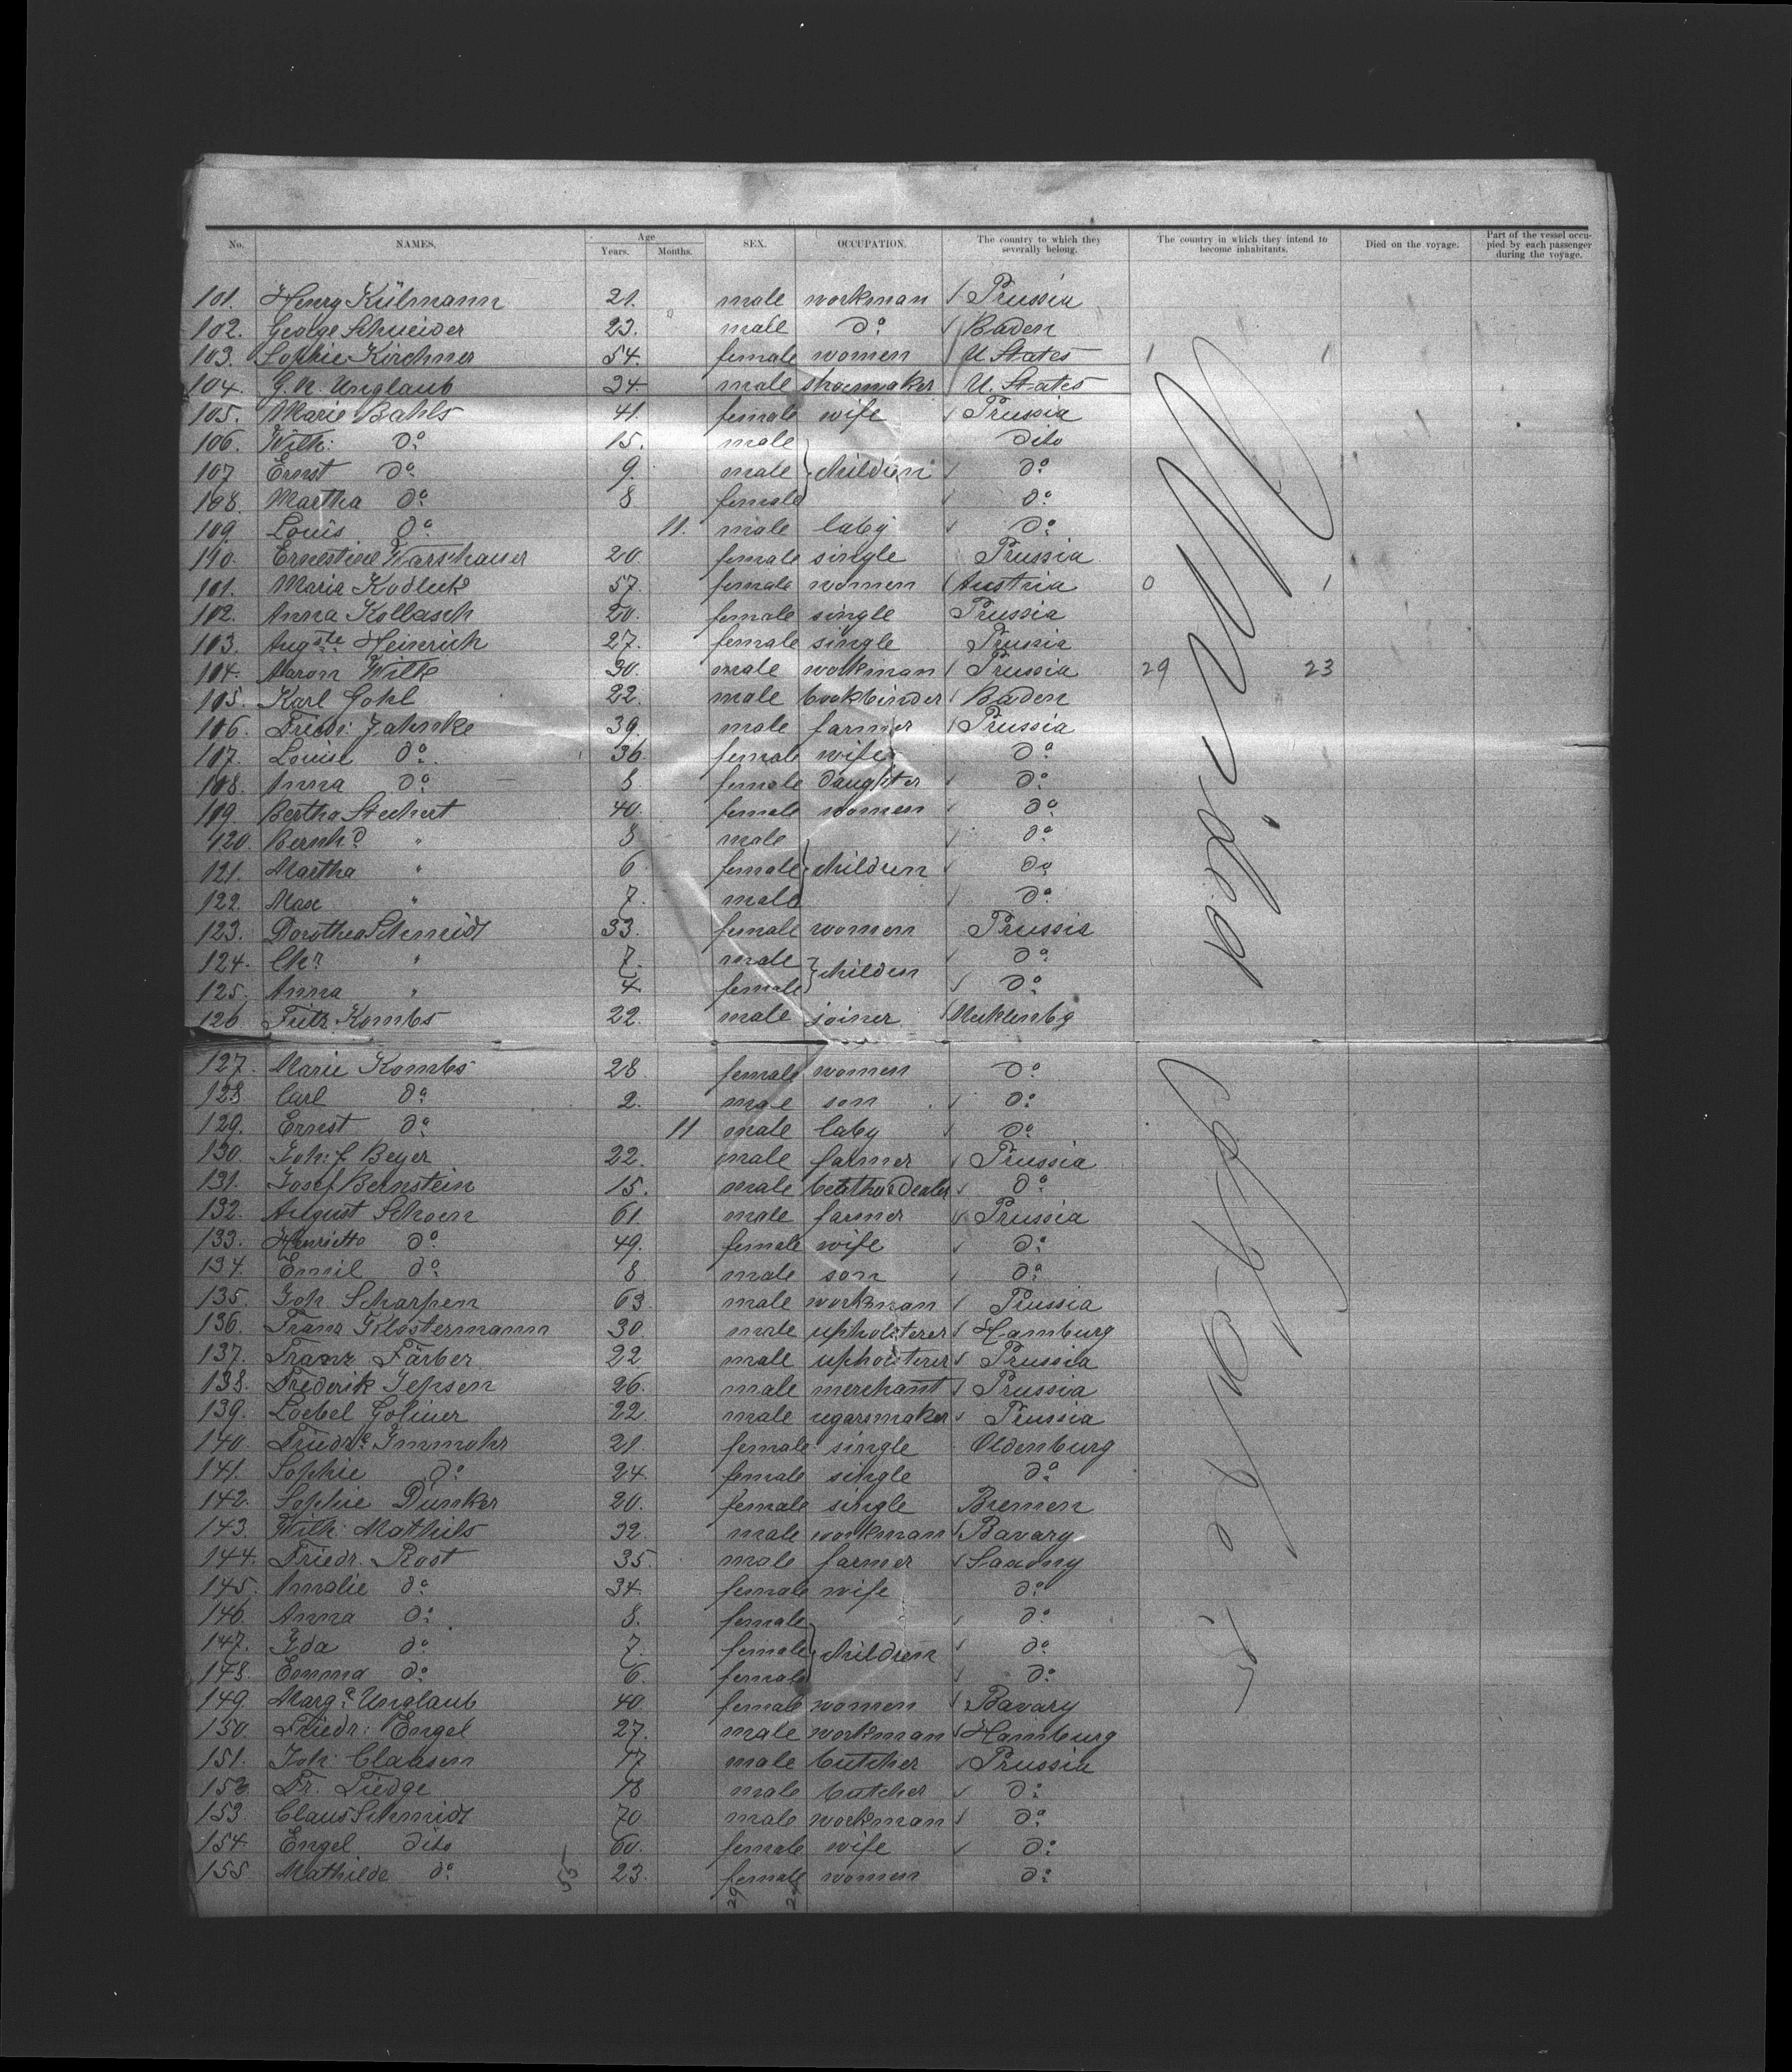 No. NAMES. Age Years. Months. SEX. OCCUPATION. The country to which they severally belong. The country in which they intend to become inhabitants. Died on the voyage. Part of the vessel occupied by each passenger during the voyage.
101. Henry Külmann 21. male workman Prussia
102. George Schneider 23. male do. Baden
103. Sophie Kirchner 54. female women U. States 1 1
104. G. N. Unglaub 34 male shoemaker U. States
105. Marie Bahls 41. female wife Prussia
106. Wilh: do. 15. male dito
107 Ernst do. 9. male children do.
108. Martha do. 8 female do.
109. Louis do. 11. male baby do.
110. Ernestine Warschauer 20. female single Prussia
101. Maria Kodleck 57. female women Austria 0 1
102. Anna Kollasch 20. female single Prussia
103. Augste Heinrich 27. female single Prussia
104. Aaron Wilk 30. male workman Prussia 29 23
105. Karl Gohl 22. male bookbinder Baden
106. Friedr: Jahnke 39. male farmer Prussia
107. Louise do. 36. female wife do.
108. Anna do. 8. female daughter do.
109. Bertha Stechert 40. female women do.
120. Bernhd " 8 male do.
121. Martha " 6 female children do.
122. Max " 7. male do.
123. Dorothea Schmidt 33. female women Prussia
124. Chr " 7. male children do.
125. Anna " 4. female do.
126 Fritz Kombs 22. male joiner Mecklenbg
127. Marie Kombs 28. female women do.
128 Carl do. 2. male son do.
129. Ernst do. 11 male baby do.
130. Joh: f. Beyer 22. male farmer Prussia
131. Josef Bernstein 15. male dealer do.
132. August Schoen 61. male farmer Prussia
133. Henriette do. 49. female wife do.
134. Emil do. 8 male son do.
135. Joh. Scharpen 63 male workman Prussia
136. Franz Klostermann 30. male upholsterer Hamburg
137. Franz Färber 22 male upholsterer Prussia
138. Frederik Jepsen 26. male merchant Prussia
139. Loebel Goliner 22 male cigarsmaker Prussia
140. Friedre Immohr 21. female single Oldenburg
141. Sophie do. 24. female single do.
142. Sophie Dunker 20. female single Bremen
143. Wilh: Mathils 32. male workman Bavary
144. Friedr. Rost 35. male farmer Saxony
145. Amalie do. 34. female wife do.
146. Anna do. 8. female do.
147. Ida do. 7. female children do.
148. Emma do. 6. female do.
149. Marg. Unglaub 40 female women Bavary
150. Friedr: Engel 27. male workman Hamburg
151. Joh: Clausen 17 male butcher Prussia
152 Fr. Tiedge 18 male butcher do.
153. Claus Schmidt 70 male workman do.
154. Engel dito 60. female wife do.
155 Mathilde do. 55 23. female women do.
29 24